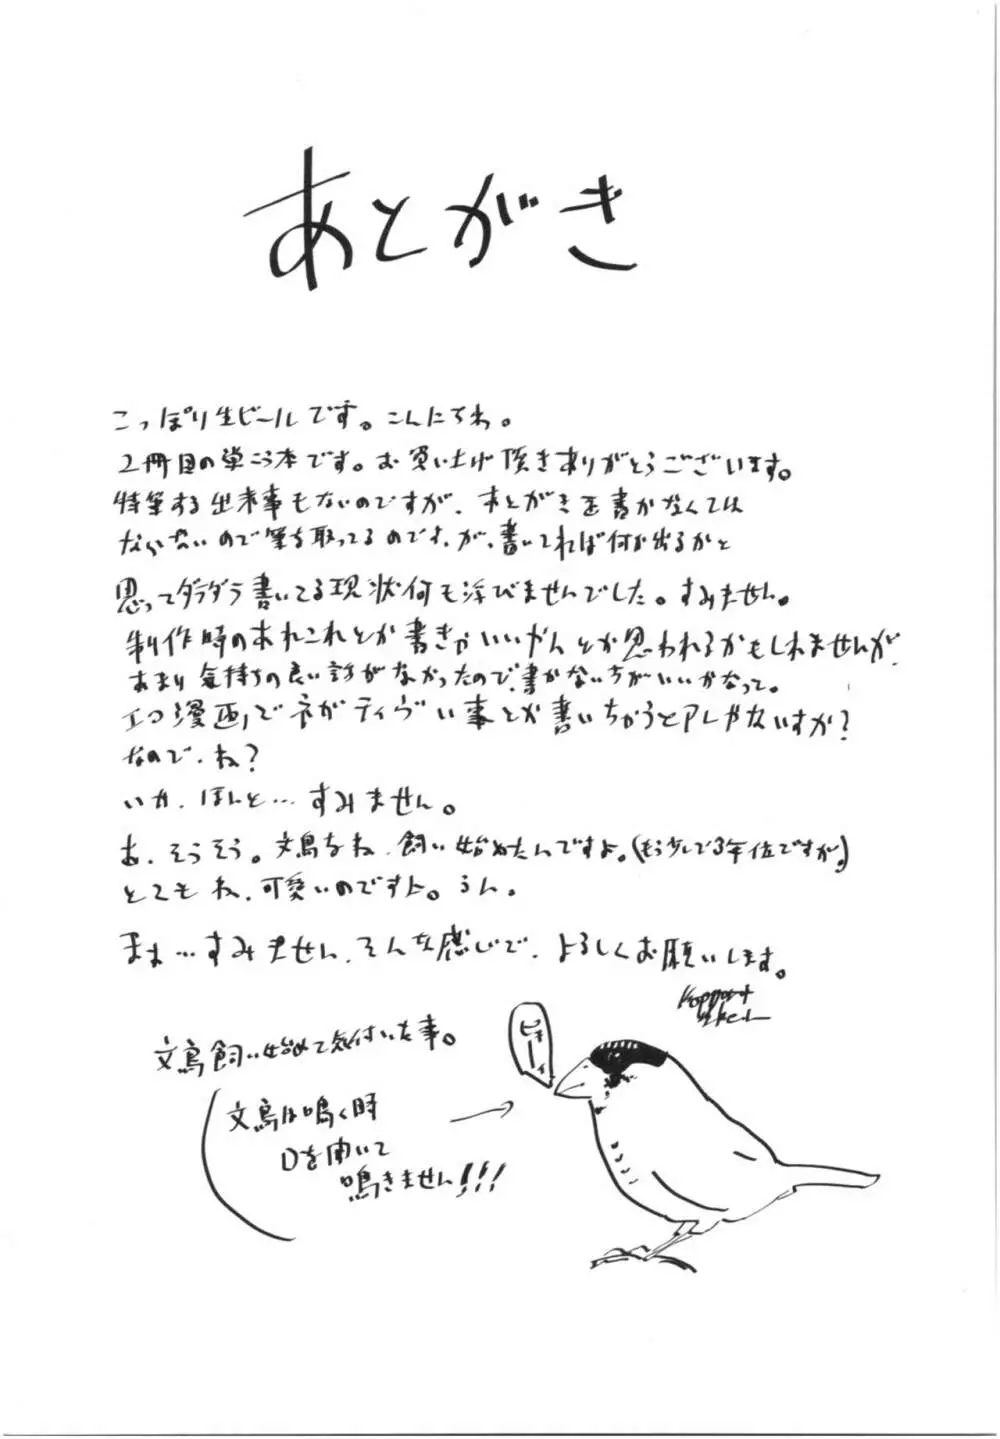 あとがき
こっぽり生ビールです。こんにちわ。
2冊目の単こう本です。お買い上げ頂きありがとうございます。
特筆する出来事もないのですが、あとがきを書かなくては
ならないので筆を取ってるのです、が、書いてれば何か出るかと
思ってダラダラ書いてる現状何も浮びませんでした。すみません。
制作時のあれこれとか書きゃいいやんとか思われるかもしれませんが、
あまり気持ちの良い話がなかったので、書かない方がいいかなって。
エロ漫画でネガティヴい事とか書いちゃうとアレじゃないすか?
なので、ね?
いや、ほんと…すみません。
あ、そうそう。文鳥をね、飼い始めたんですよ。(もう少しで3年位ですが。)
とてもね、可愛いのですよ。うん。
まぁ…すみません、そんな感じで、よろしくお願いします。
ピキーィ
文鳥飼い始めて気付いた事。
文鳥は鳴く時
口を開いて
鳴きません!!!